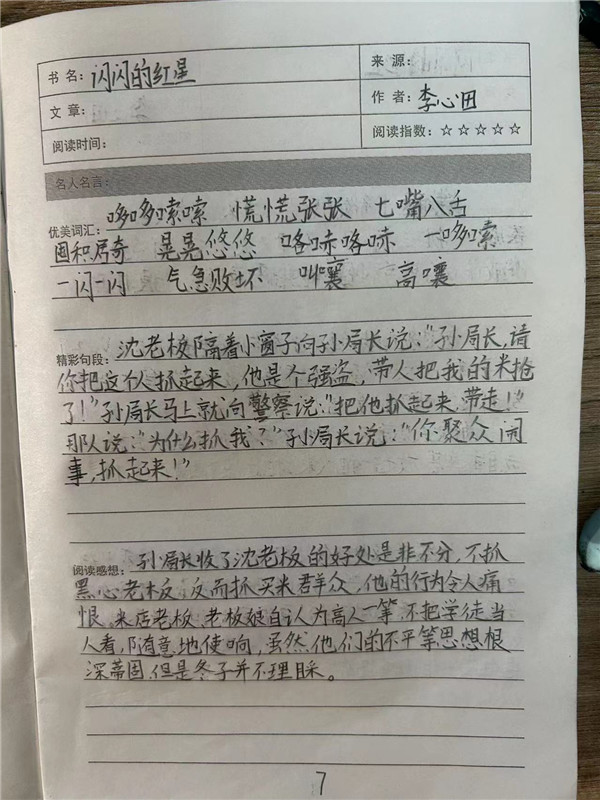 书名：闪闪的红星 来源：
文章： 作者：李心田
阅读时间： 阅读指数：☆☆☆☆☆
名人名言：
优美词汇：哆哆嗦嗦 慌慌张张 七嘴八舌
囤积居奇 晃晃悠悠 咯哧咯哧 一哆嗦
一闪一闪 气急败坏 叫嚷 高嚷
精彩句段：沈老板隔着小窗子向孙局长说："孙局长，请
你把这个人抓起来，他是个强盗，带人把我的米抢
了！"孙局长马上就向警察说："把他抓起来，带走！"
那人说："为什么抓我？"孙局长说："你聚众闹
事，抓起来！"
阅读感想：孙局长收了沈老板的好处是非不分，不抓
黑心老板，反而抓买米群众，他的行为令人痛
恨。米店老板、老板娘自认为高人一等，不把学徒当
人看，随意地使响，虽然他们的不平等思想根
深蒂固，但是冬子并不理睬。
7